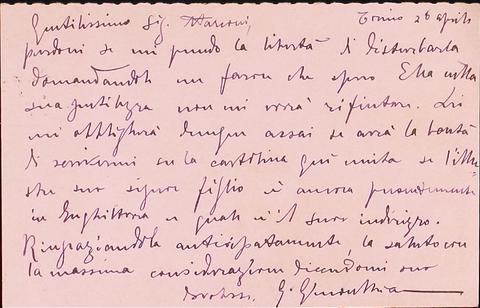 Gentilissimo Sig. Marconi, Torino 26 aprile
perdoni se mi prendo la libertà di disturbarla
domandandole un favore che spero Ella nella
sua gentilezza non mi vorrà rifiutare. Lei
mi obbligherà dunque assai se avrà la bontà
di scrivermi su la cartolina qui unita se l'illu-
stre suo signor figlio è ancora presentemente
in Inghilterra e quale è il suo indirizzo.
Ringraziandola anticipatamente, la saluto con
la massima considerazione dicendomi suo
devotiss. G.